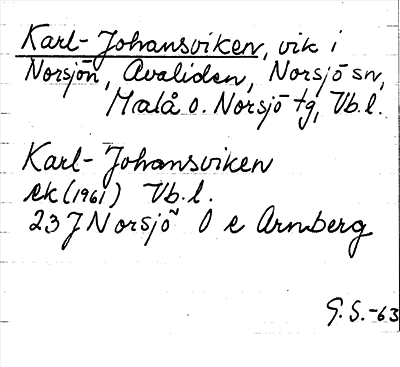 Karl-Johansviken, vik i
Norsjön, Avaliden, Norsjö sn,
Malå o. Norsjö tg, Vb.l.
Karl-Johansviken
ek (1961) Vb.l.
23 J Norsjö O e Arnberg
G.S.-63